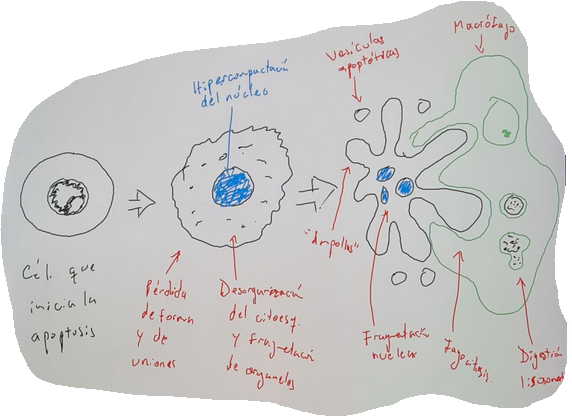 Cél. que
inicia la
apoptosis
Hipercompactació
del núcleo
Pérdida
de forma
y de
uniones
Desorganizació
del citoesq.
y fragmetació
de organelos
Vesículas
apoptóticas
"Ampollas"
Fragmetació
nuclear
Macrófago
Fagocitosis.
Digestión
lisosomal